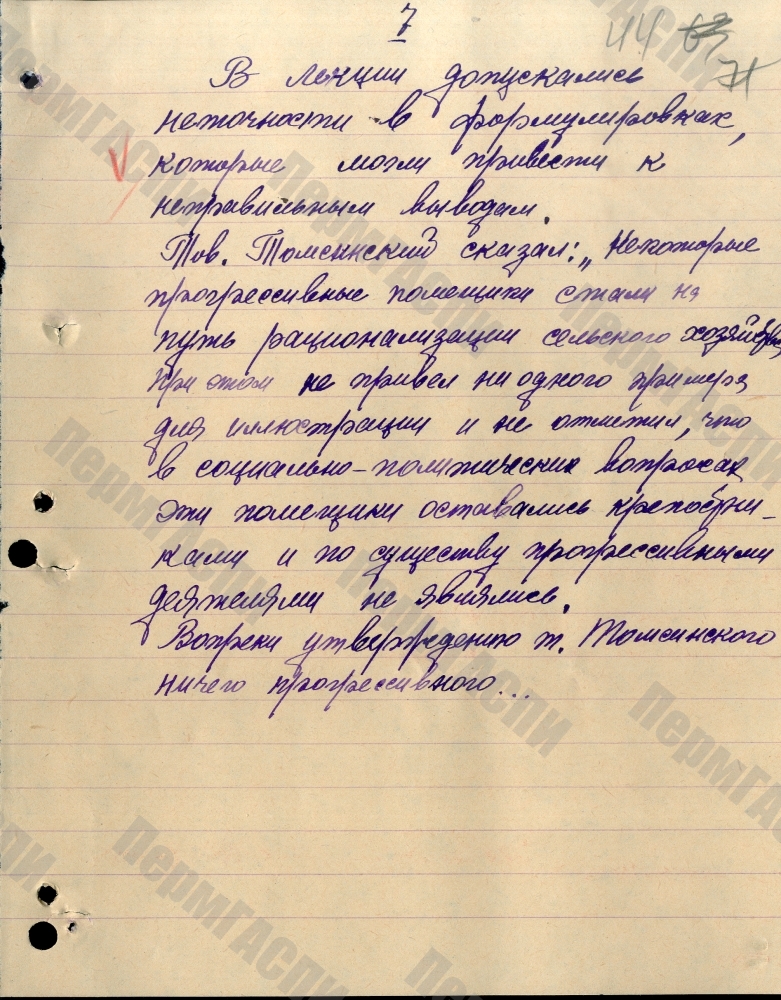 7
44 71
В лекции допускались
неточности в формулировках,
которые могли привести к
неправильным выводам.
Тов. Томсинский сказал: „Некоторые
прогрессивные помещики стали на
путь рационализации сельского хозяйства
При этом не привел ни одного примера
для иллюстрации и не отметил, что
в социально-политических вопросах
эти помещики оставались крепостни-
ками и по существу прогрессивными
деятелями не являлись.
Вопреки утверждению т. Томсинского
ничего прогрессивного...
ПермГАСПИ